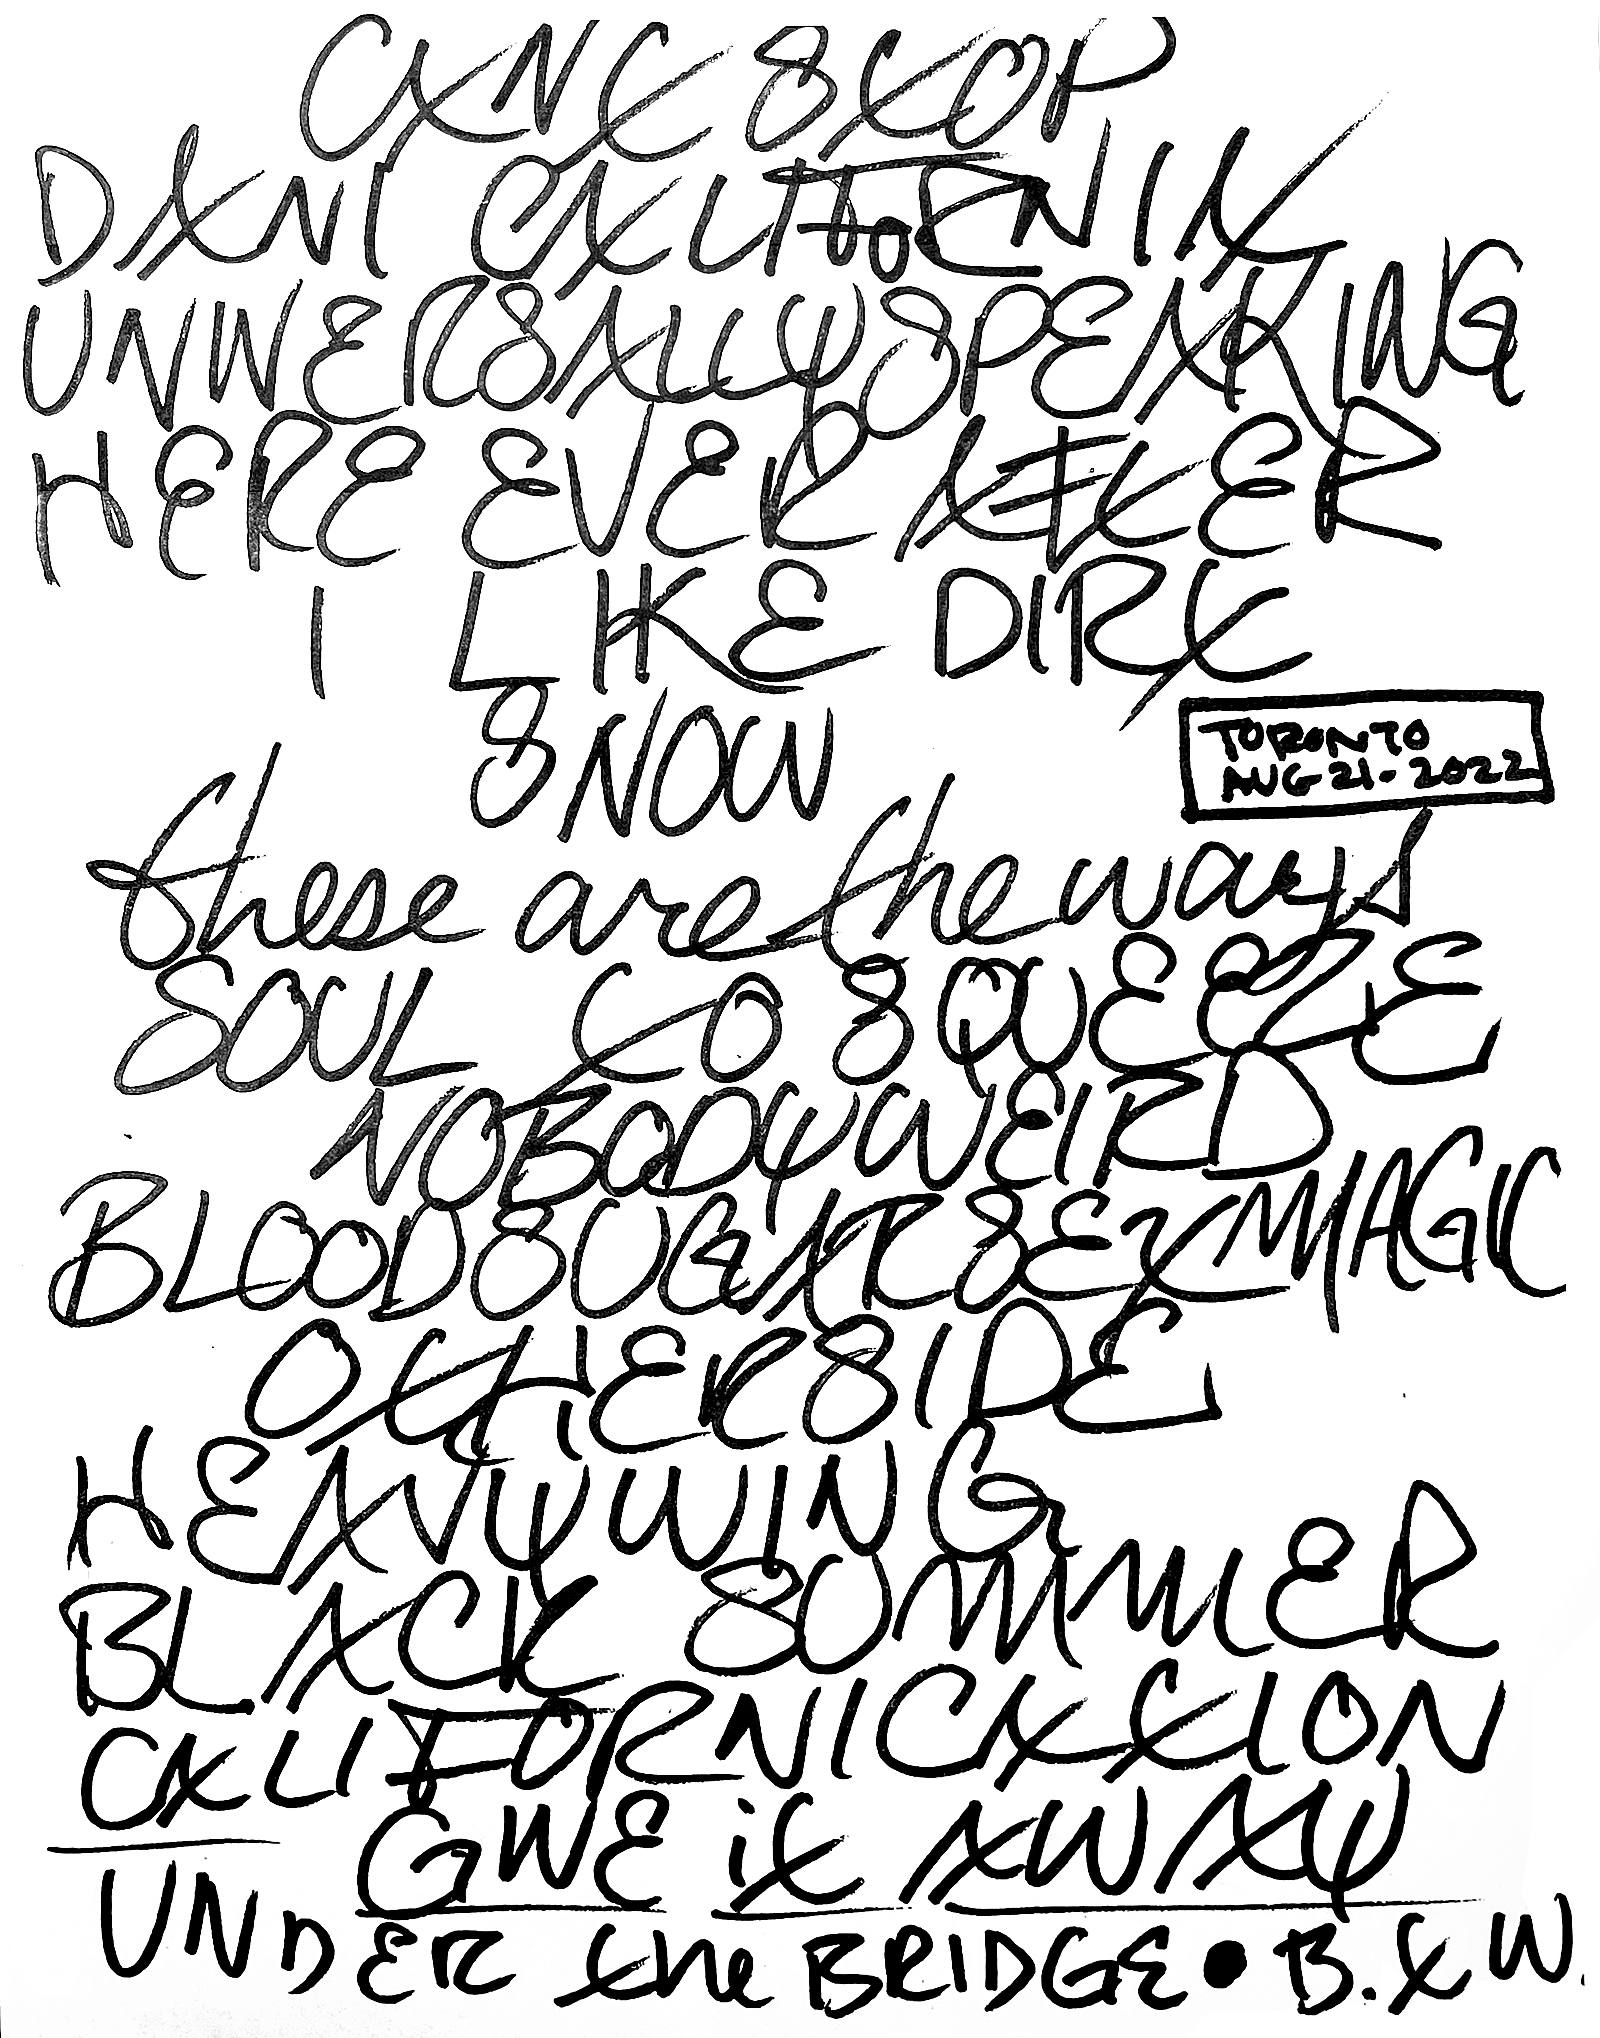 CAN'T STOP
DANI CALIFORNIA
UNIVERSALLY SPEAKING
HERE EVER AFTER
I LIKE DIRT
SNOW
TORONTO
AUG 21·2022
these are the ways
SOUL TO SQUEEZE
NOBODY WEIRD
BLOOD SUGAR SEX MAGIC
OTHERSIDE
HEAVY WING
BLACK SUMMER
CALIFORNICATION
GIVE it AWAY
UNDER the BRIDGE • B.T.W.